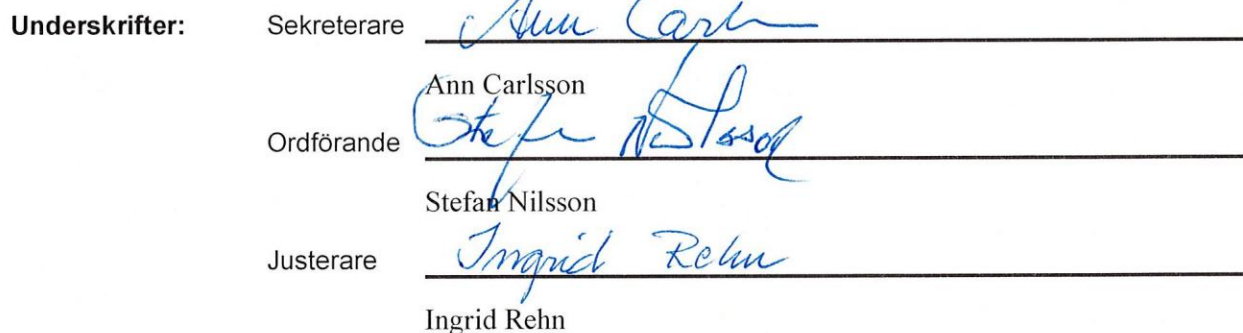 Underskrifter: Sekreterare Ann Carl
Ann Carlsson
Ordförande Stefan Nilsson
Stefan Nilsson
Justerare Ingrid Rehn
Ingrid Rehn